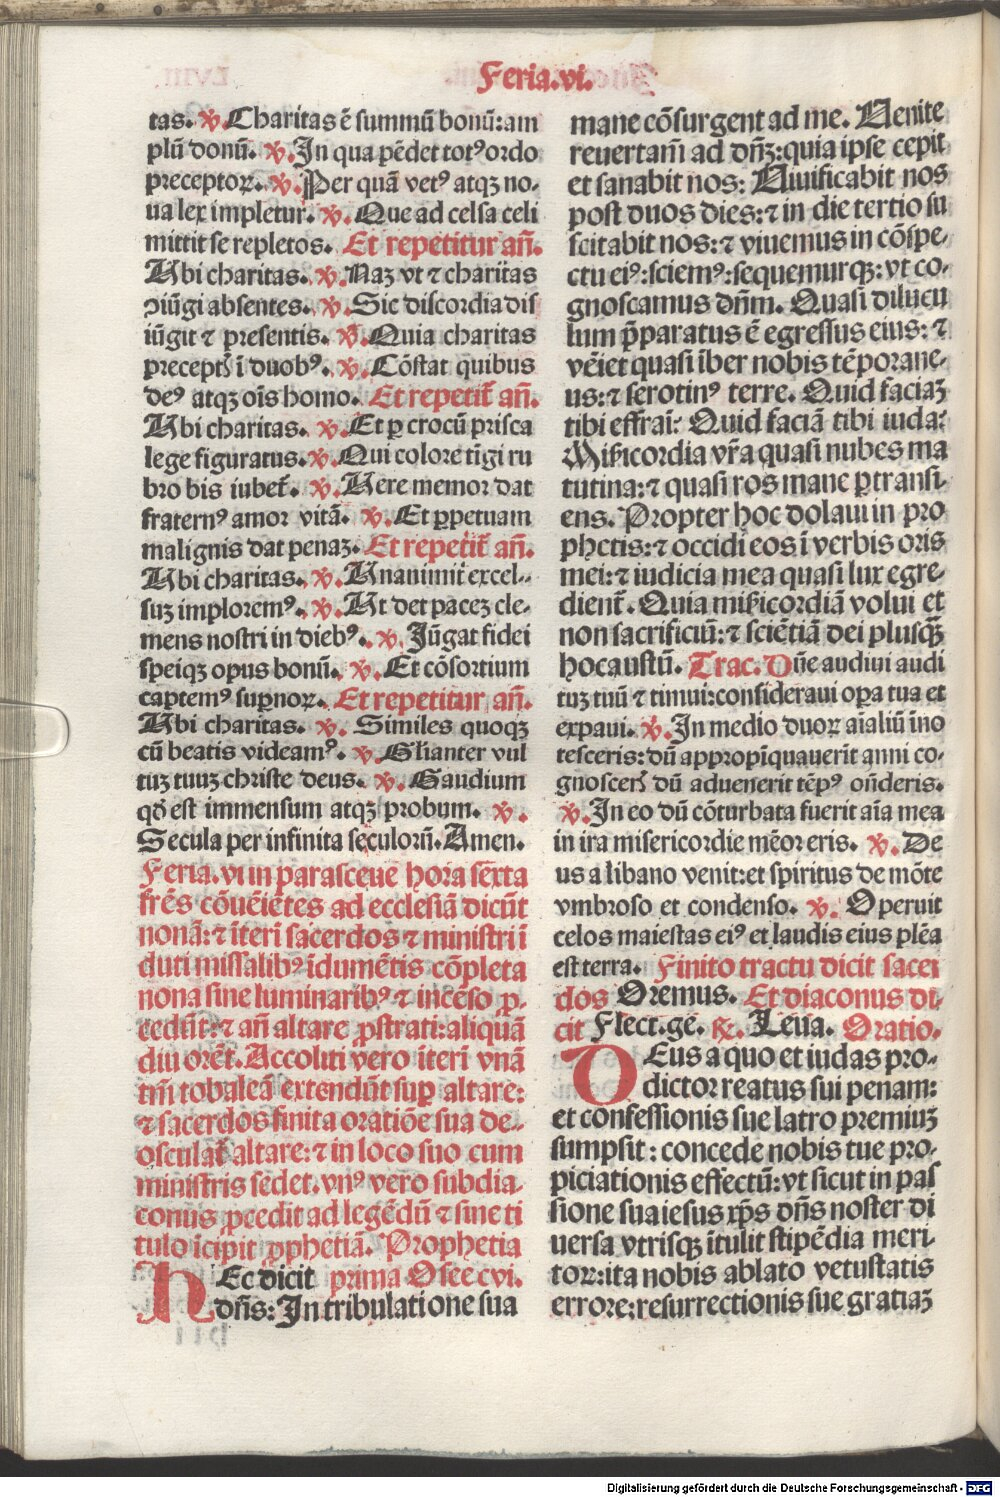 Feria.vi.
tas. ℣. Charitas ē summū bonū: am
plū donū. ℣. In qua pēdet totꝰ ordo
preceptoꝝ. ℣. Per quā vetꝰ atqꝫ no-
ua lex impletur. ℣. Que ad celsa celi
mittit se repletos. Et repetitur añ.
Ubi charitas. ℣. Naꝫ vt ⁊ charitas
ↄiūgi absentes. ℣. Sic discordia dis
iūgit ⁊ presentis. ℣. Quia charitas
precepti ī duobꝰ. ℣. Cōstat quibus
deꝰ atqꝫ ois homo. Et repetit añ.
Ubi charitas. ℣. Et ꝑ crocū prisca
lege figuratus. ℣. Qui colore tīgi ru
bro bis iubet. ℣. Uere memor dat
fraternꝰ amor vitā. ℣. Et ꝑpetuam
malignis dat penaꝫ. Et repetit añ.
Ubi charitas. ℣. Unanimit excel-
suꝫ imploremꝰ. ℣. Ut det paceꝫ cle-
mens nostri in diebꝰ. ℣. Jūgat fidei
speiqꝫ opus bonū. ℣. Et cōsortium
captemꝰ suꝑnoꝝ. Et repetitur añ.
Ubi charitas. ℣. Similes quoqꝫ
cū beatis videamꝰ. ℣. Glianter vul
tuꝫ tuuꝫ christe deus. ℣. Gaudium
qd̄ est immensum atqꝫ probum. ℣.
Secula per infinita seculorū. Amen.
Feria.vi in parasceue hora sexta
fr̄es cōueīētes ad ecclesiā dicūt
nonā: ⁊ īterī sacerdos ⁊ ministri ī
duti missalibꝰ īdumētis cōpleta
nona sine luminaribꝰ ⁊ incēso ꝓ-
cedūt: ⁊ añ altare ꝓstrati: aliquā
diu orēt. Accoluti vero īterī vnā
tm̄ tobaleā extendūt suꝑ altare:
⁊ sacerdos finita oratiōe sua de-
osculat altare: ⁊ in loco suo cum
ministris sedet. vnꝰ vero subdia-
conus ꝓcedit ad legēdū ⁊ sine ti
tulo īcipit ꝓphetiā. Prophetia
HEc dicit prima Osee cvi.
dn̄s: In tribulatione sua
mane cōsurgent ad me. Uenite
reuertam̄ ad dn̄ꝫ: quia ipse cepit
et sanabit nos: Uiuificabit nos
post duos dies: ⁊ in die tertio su
scitabit nos: ⁊ viuemus in cōspe-
ctu eiꝰ: sciemꝰ: sequemurqꝫ: vt co-
gnoscamus dn̄m. Quasi dilucu
lum p̄paratus ē egressus eius: ⁊
vēiet quasi īber nobis tēporane-
us: ⁊ serotinꝰ terre. Quid faciaꝫ
tibi effraī: Quid faciā tibi iuda:
Misericordia vr̄a quasi nubes ma
tutina: ⁊ quasi ros mane ꝑtransi-
ens. Propter hoc dolaui in pro
phetis: ⁊ occidi eos ī verbis oris
mei: ⁊ iudicia mea quasi lux egre-
dient. Quia misericordiā volui et
non sacrificiū: ⁊ sciētiā dei plusq̄ꝫ
hocaustū. Trac. Dn̄e audiui audi
tuꝫ tuū ⁊ timui: consideraui oꝑa tua et
expaui. ℣. In medio duoꝝ aīaliū īno
tesceris: dū appropīquauerīt anni co-
gnosceris dū aduenerit tēpꝰ on̄deris.
℣. In eo dū cōturbata fuerit aīa mea
in ira misericordie mēor eris. ℣. De
us a libano venit: et spiritus de mōte
vmbroso et condenso. ℣. Operuit
celos maiestas eiꝰ et laudis eius plēa
est terra. Finito tractu dicit sacer
dos Oremus. Et diaconus di-
cit Flect.ge. ℟. Leua. Oratio.
DEus a quo et iudas pro-
dictor reatus sui penam:
et confessionis sue latro premiuꝫ
sumpsit: concede nobis tue pro-
piciationis effectū: vt sicut in pas
sione sua iesus xp̄s dn̄s noster di
uersa vtrisqꝫ ītulit stipēdia meri-
toꝝ: ita nobis ablato vetustatis
errore: resurrectionis sue gratiaꝫ
Digitalisierung gefördert durch die Deutsche Forschungsgemeinschaft - DFG